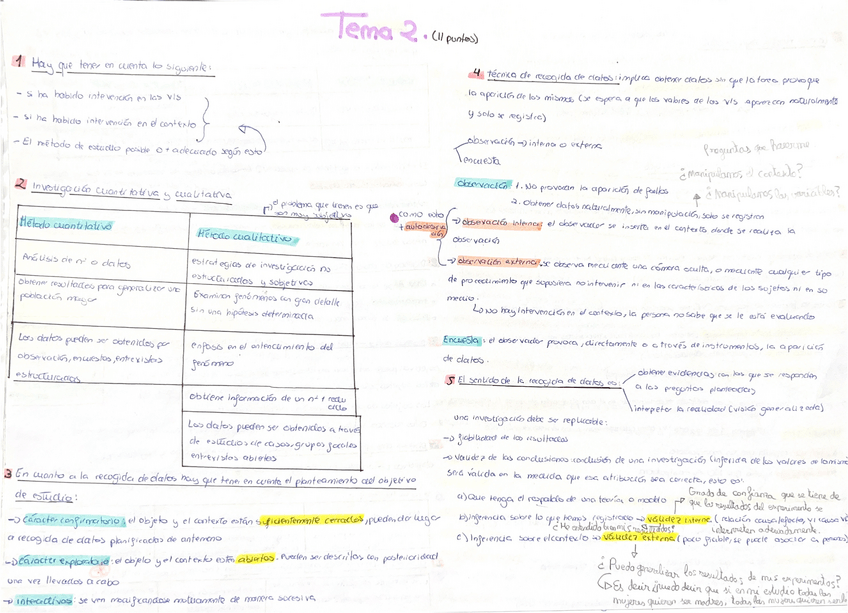 Tema 2. (11 puntos)
1 Hay que tener en cuenta lo siguiente:
- si ha habido intervención en las VIs
- si ha habido intervención en el contexto
- El método de estudio posible o + adecuado según esto
2 Investigación cuantitativa y cualitativa
el problema que tienen es que son muy subjetivo
Método cuantitativo
Método cualitativo
Análisis de nº o datos
estrategias de investigación no estructurados y subjetivos
obtener resultados para generalizar una población mayor
Examinan fenómenos con gran detalle
sin una hipótesis determinada
Los datos pueden ser obtenidos por
observación, encuestas, entrevistas
estructuradas
enfasis en el entendimiento del
fenómeno
obtiene información de un nº + redu
cido
Los datos pueden ser obtenidos a través
de estudios de casos, grupos focales
entrevistas abiertas
3 En cuanto a la recogida de datos hay que tener en cuenta el planteamiento del objetivo
de estudio:
→ carácter confirmatorio: el objeto y el contexto están suficientemente cerrados, pueden dar lugar
a recogida de datos planificados de antemano
→ carácter exploratorio: el objeto y el contexto están abiertos. Pueden ser descritas con posterioridad
una vez llevados a cabo
→ interactivos: se ven modificándose mutuamente de manera sucesiva
4 técnica de recogida de datos: implica obtener datos sin que la tarea provoque
la aparición de los mismos (se espera a que los valores de las VIs aparezcan naturalmente
y solo se registra)
observación → interna o externa
encuesta
Preguntas que hacerme
¿manipulamos el contexto?
¿Manipulamos las variables?
observación 1. No provocan la aparición de
2. Obtener datos naturalmente, sin manipulación, solo se registran
como esto
+ autoobserva
ción
→ observación interna: el observador se inserta en el contexto donde se realiza la
observación
→ observación externa: se observa mediante una cámara oculta, o mediante cualquier tipo
de procedimiento que supusiera no intervenir ni en las características de los sujetos ni en su
medio.
↳ no hay intervención en el contexto, la persona no sabe que se le está evaluando
Encuesta: el observador provoca, directamente o a través de instrumentos, la aparición
de datos.
5 El sentido de la recogida de datos es:
obtener evidencias con las que se responden
a las preguntas planteadas
interpretar la realidad (visión generalizada)
una investigación debe se replicable:
→ fiabilidad de los resultados
→ validez de las conclusiones conclusión de una investigación (inferida de los valores
será válida en la medida que esa atribución sea correcta, esto es:
a) Que tenga el respaldo de una teoría o modelo
Grado de confianza que se tiene de
que los resultados del experimento se
b) inferencia sobre lo que hemos registrado → validez interna (relación causa efecto,
interpreten adecuadamente.
c) Inferencia sobre el contexto → validez externa (poco fiable, se puede asociar
¿Puedo generalizar los resultados de mis experimentos?
Es decir ¿puedo decir que si en mi estudio todas las
mujeres quieren ser madres, todas las mujeres quieren